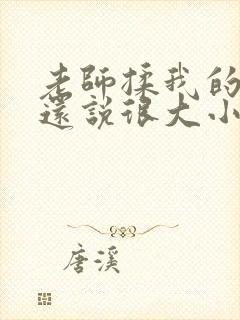 老師揉我的
還說很大小
唐溪